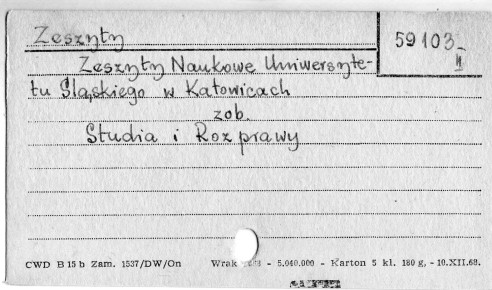 Zeszyty
59103
II
Zeszyty Naukowe Uniwersyte-
tu Śląskiego w Katowicach
zob.
Studia i Rozprawy
CWD B 15 b Zam. 1537/DW/On Wrak - 5.040.000 - Karton 5 kl. 180 g, - 10.XII.68.